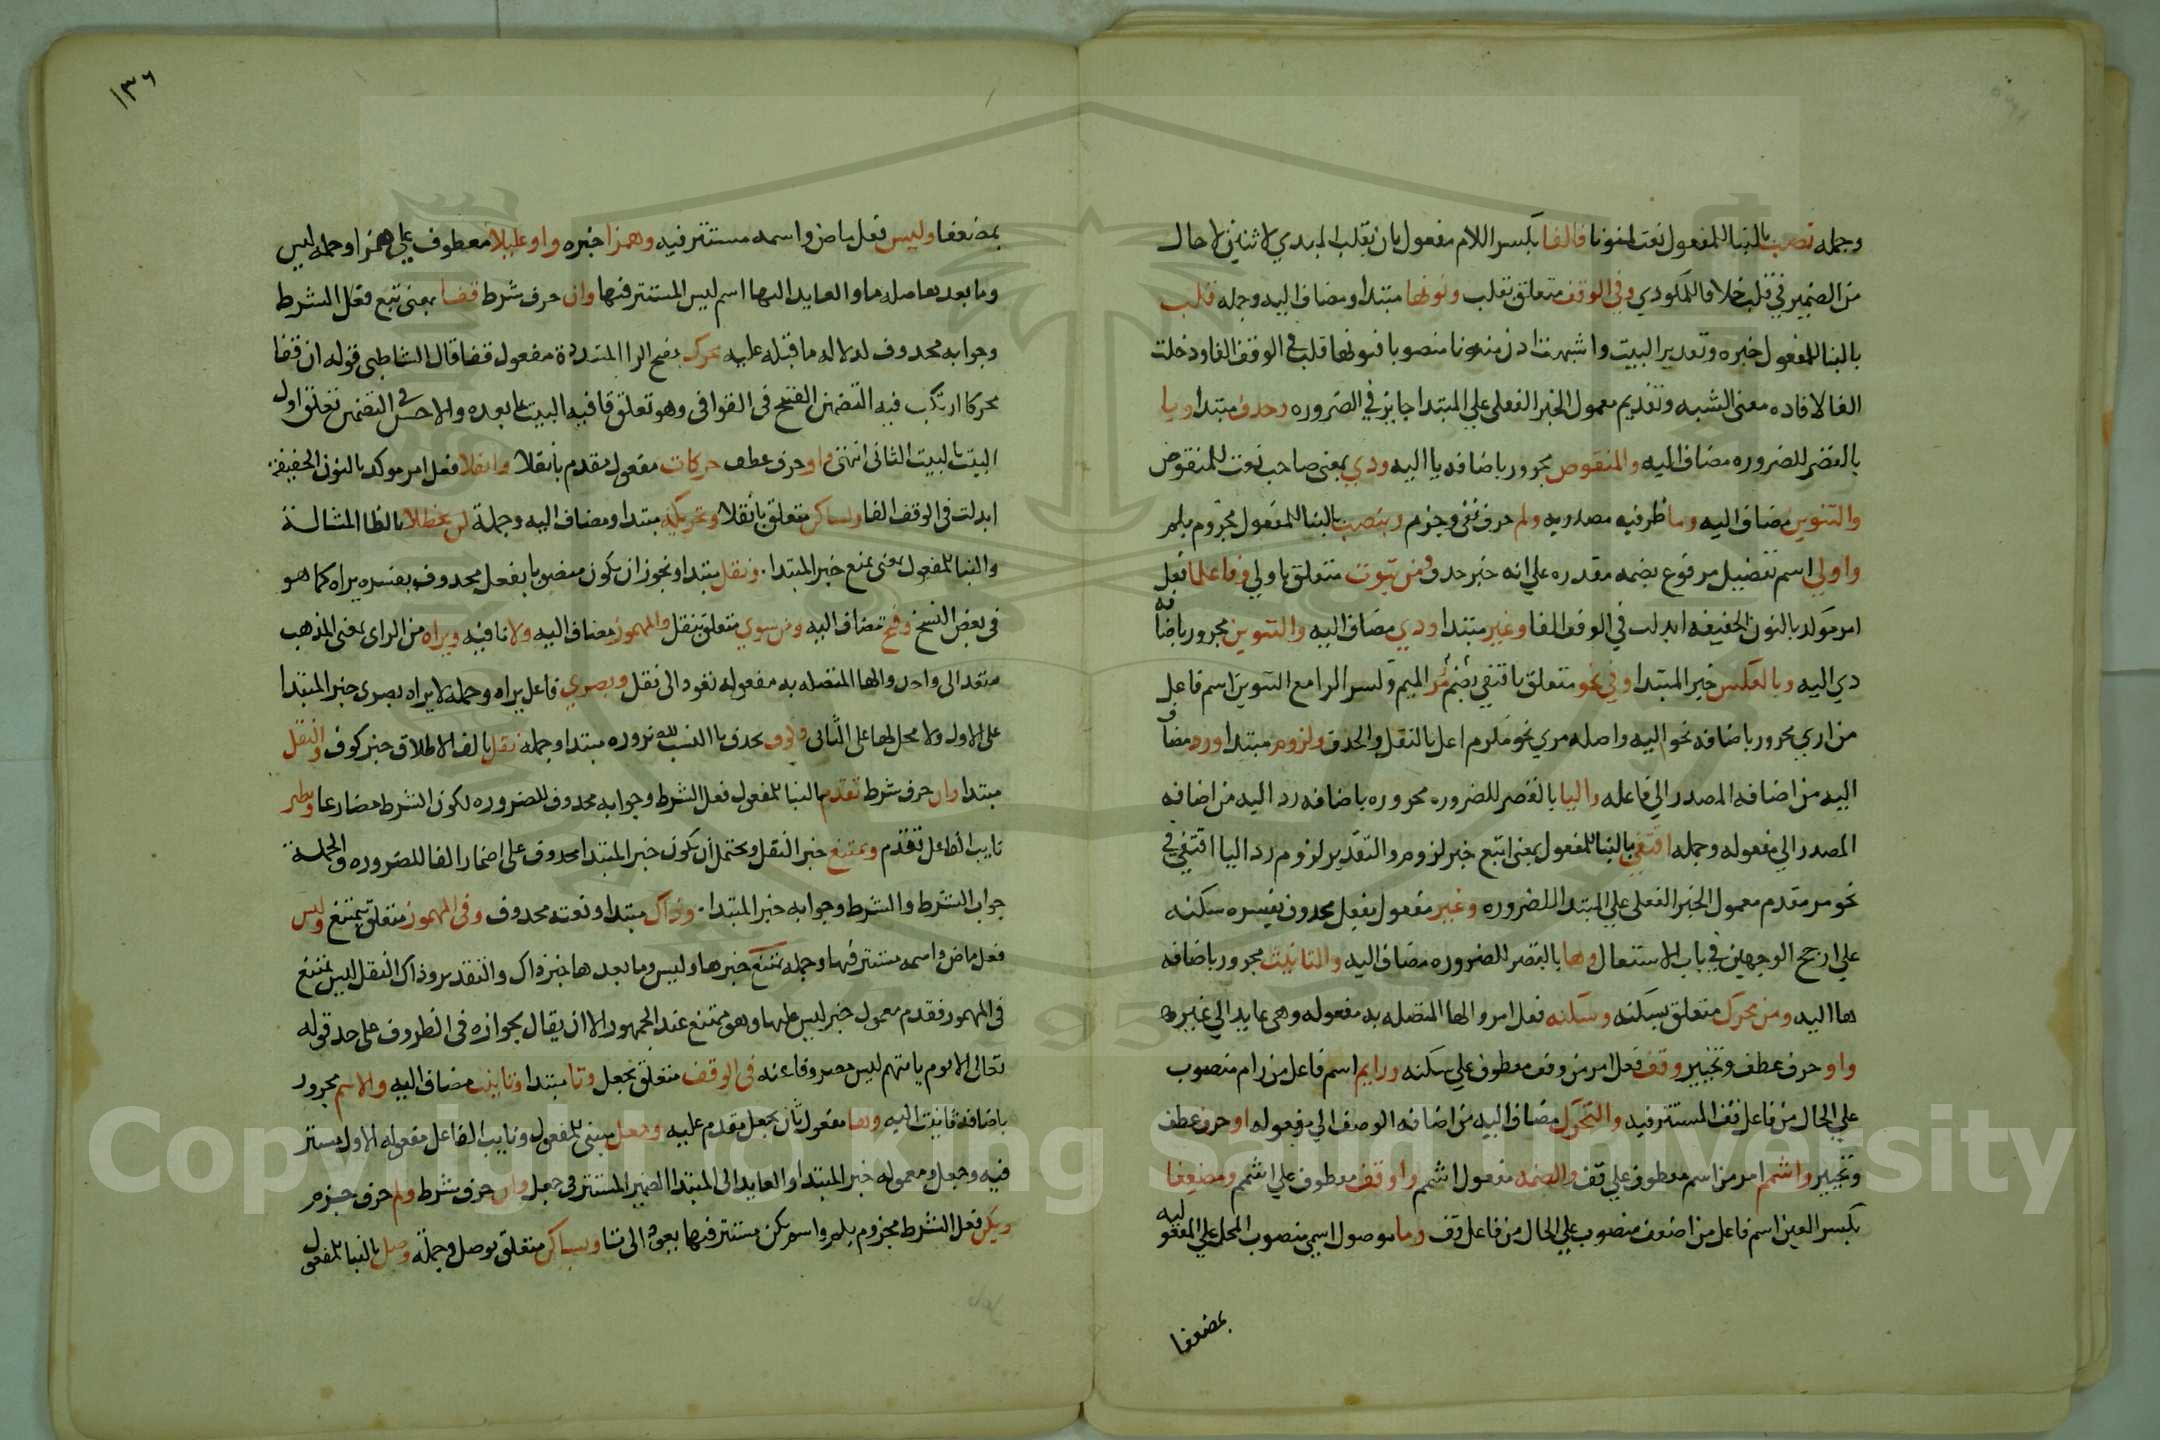 وجمله نصب بالبنا للمفعول نعت لمنونا فالفا بكسر اللام مفعول بان بقلب المبدي لاثنين لا حال
من الضمير في قلب خلافا للمكودي وفي الوقف متعلق بقلب ونونها مبتدا ومضاف اليه وجمله قلب
بالبنا للمفعول خبره وتقدير البيت واشبهت اذن منونا منصوبا فنونها قلب في الوقف الفا ودخلت
الفا لافاده معنى الشبه وتقديم معمول الخبر الفعلي علي المبتدا جايز في الضروره وحذف مبتدا ويا
بالقصر للضروره مضاف اليه والمنقوص مجرور باضافه يا اليه وذي بمعنى صاحب نعت للمنقوص
والتنوين مضاف اليه وما ظرفيه مصدريه ولم حرف نفي وجزم وينصب بالبنا للمفعول مجزوم بلم
واولي اسم تفضيل مرفوع بضمه مقدره علي انه خبر حذف ومن ثبوت متعلق باولي وفاعلما فعل
امر موكد بالنون الخفيفه ابدلت في الوقف الفا وغير مبتدا وذي مضاف اليه والتنوين مجرور باضافه
ذي اليه وبالعكس خبر المبتدا وفي نحو متعلق باقتفي بضم مر الميم وكسر الرا مع التنوين اسم فاعل
من اري مجرور باضافه نحو اليه واصله مري نحو مكرم اعل بالنقل والحذف ولزوم مبتدا ورد مضاف
اليه من اضافه المصدر الي فاعله واليا بالقصر للضروره مجروره باضافه رد اليه من اضافه
المصدر الي مفعوله وجمله اقتفي بالبنا للمفعول بمعنى اتبع خبر لزوم والتقدير لزوم رد اليا اقتفي في
نحو مر مقدم معمول الخبر الفعلي علي المبتدا للضروره وغير مفعول بفعل محذوف يفسره سكنه
علي ارجح الوجهين في باب الاشتغال وها بالقصر للضروره مضاف اليه والتانيث مجرور باضافه
ها اليه ومن محرك متعلق بسكنه وسكنه فعل امر والها المتصله به مفعوله وهي عايد الي غيرها
واو حرف عطف وتخيير وقف فعل امر من وقف معطوف علي سكنه ورايم اسم فاعل من رام منصوب
علي الحال من فاعل قف المستتر فيه والتحرك مضاف اليه من اضافه الوصف الي مفعوله او حرف عطف
وتخيير واشمم امر من اسم معطوف علي قف والضمه مفعول اشمم واو وقف معطوف علي اشمم ومضعفا
بكسر العين اسم فاعل من اضعف منصوب علي الحال من فاعل قف وما موصول اسمي منصوب المحل علي المفعوليه
بمضعفا
١٣٦
بمضعفا وليس فعل ماض واسمه مستتر فيه وهمزا خبره واو عليلا معطوف علي همزا وجمله ليس
وما بعدها صله ما والعايد اليها اسم ليس المستتر فيها وان حرف شرط قفا بمعنى تبع فعل الشرط
وجوابه محذوف لدلاله ما قبله عليه محركا بفتح الرا المشددة مفعول قفا قال الشاطبي قوله ان قفا
محركا ارتكب فيه التضمين القبيح في القوافي وهو تعلق قافيه البيت بما بعده والاحسن في التضمين تعلق اول
البيت بالبيت الثاني انتهى واو حرف عطف حركات مفعول مقدم بانقلا وانقلا فعل امر موكد بالنون الخفيفة
ابدلت في الوقف الفا ولساكن متعلق بانقلا وتحريكه مبتدا ومضاف اليه وجملة لن يحظلا بالظا المشالة
والبنا للمفعول بمعنى يمنع خبر المبتدا. ونقل مبتدا ويجوز ان يكون منصوبا بفعل محذوف يفسره يراه كما هو
في بعض النسخ وفتح مضاف اليه ومن سوي متعلق بنقل والمهموز مضاف اليه ولا نافيه ويراه من الراي بمعنى المذهب
متعد الى واحد والها المتصله به مفعوله تعود الى نقل وبصري فاعل يراه وجمله لا يراه بصري خبر المبتدا
على الاول ولا محل لها على الثاني وكوف بحذف يا النسب للضروره مبتدا وجمله نقلا بالف الاطلاق خبر كوف والنقل
مبتدا وان حرف شرط تعدم بالبنا للمفعول فعل الشرط وجوابه محذوف للضروره لكون الشرط مضارعا ونظير
نايب الفاعل تقدم وممتنع خبر النقل ويحتمل أن يكون خبر المبتدا محذوف على اضمار الفا للضروره والجملة
جواب الشرط والشرط وجوابه خبر المبتدا. وذاك مبتدا ونعته محذوف وفي المهموز متعلق بيمتنع وليس
فعل ماض واسمه مستتر فيها وجمله يمتنع خبرها وليس وما بعدها خبر ذاك والتقدير وذاك النقل ليس يمتنع
في المهموز فقدم معمول خبر ليس عليها وهو ممتنع عند الجمهور الا ان يقال بجوازه في الظروف على حد قوله
تعالى الا يوم ياتيهم ليس مصروفا عنهم في الوقف متعلق بجعل وتا مبتدا وتانيث مضاف اليه والاسم مجرور
باضافة تانيث اليه وها مفعول ثان بجعل مقدم عليه وجعل مبني للمفعول ونايب الفاعل مفعوله الاول مستتر
فيه وجعل ومعموله خبر المبتدا والعايد الى المبتدا الضمير المستتر في جعل وان حرف شرط ولم حرف جزم
ويكن فعل الشرط مجزوم بلم واسم يكن مستتر فيها يعود الى تا وبساكن متعلق بوصل وجملة وصل بالبنا للمفعول
Copyright © King Saud University